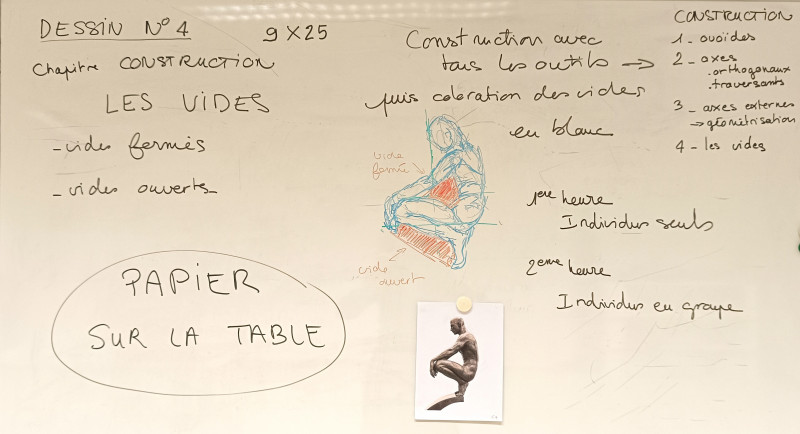 DESSIN N° 4
9 X 25
Chapitre CONSTRUCTION
LES VIDES
- vides fermés
- vides ouverts
PAPIER
SUR LA TABLE
Construction avec
tous les outils →
puis coloration des vides
en blanc
vide
fermé
vide
ouvert
1ere heure
Individus seuls
2eme heure
Individus en groupe
CONSTRUCTION
1 - ovoïdes
2 - axes
.orthogonaux
.traversants
3 - axes externes
→ géométrisation
4 - les vides